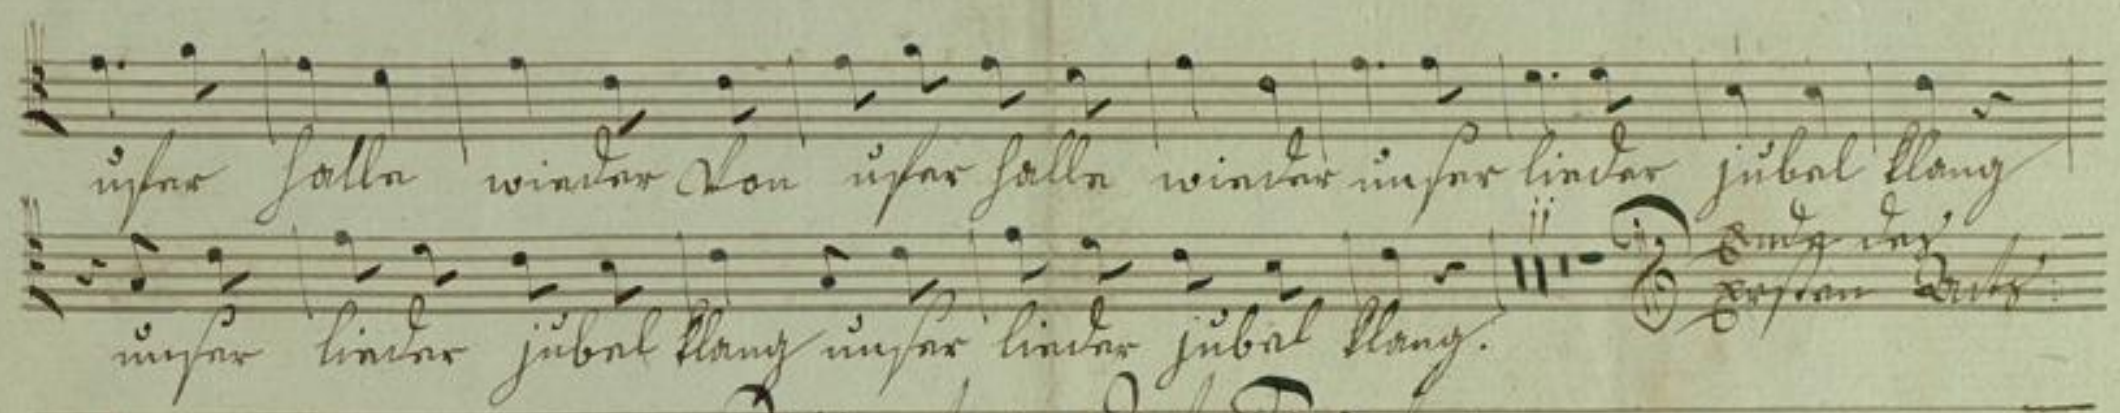 ufer halle wieder Von ufer halle wieder unser lieder jubel klang
unser lieder jubel klang unser lieder jubel klang.
11
Ende des
Ersten Acts